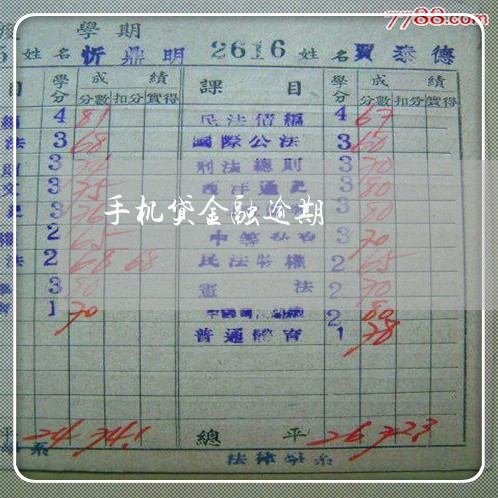 7788.com
學期
姓名 忻鼎明 2616 姓名 賈泰德
目 學分 成績 課目 學分 成績
分數 扣分 實得 分數 扣分 實得
4 81 民法債編 4 67
法 3 68 國際公法 3 60
3 刑法總則 3 70
3 75 西洋通史 3 80
3 3 80
手机贷金融逾期
2 65 3 70
法 2 68 68 民法物權 2 65
3 80 憲法 2 70
1 70 2 80
普通體育 1 78
平 24 74.1 總平 26 72.3
系 法律學系